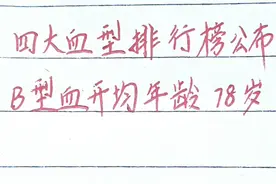 四大血型排行榜公布
B型血平均年龄78岁